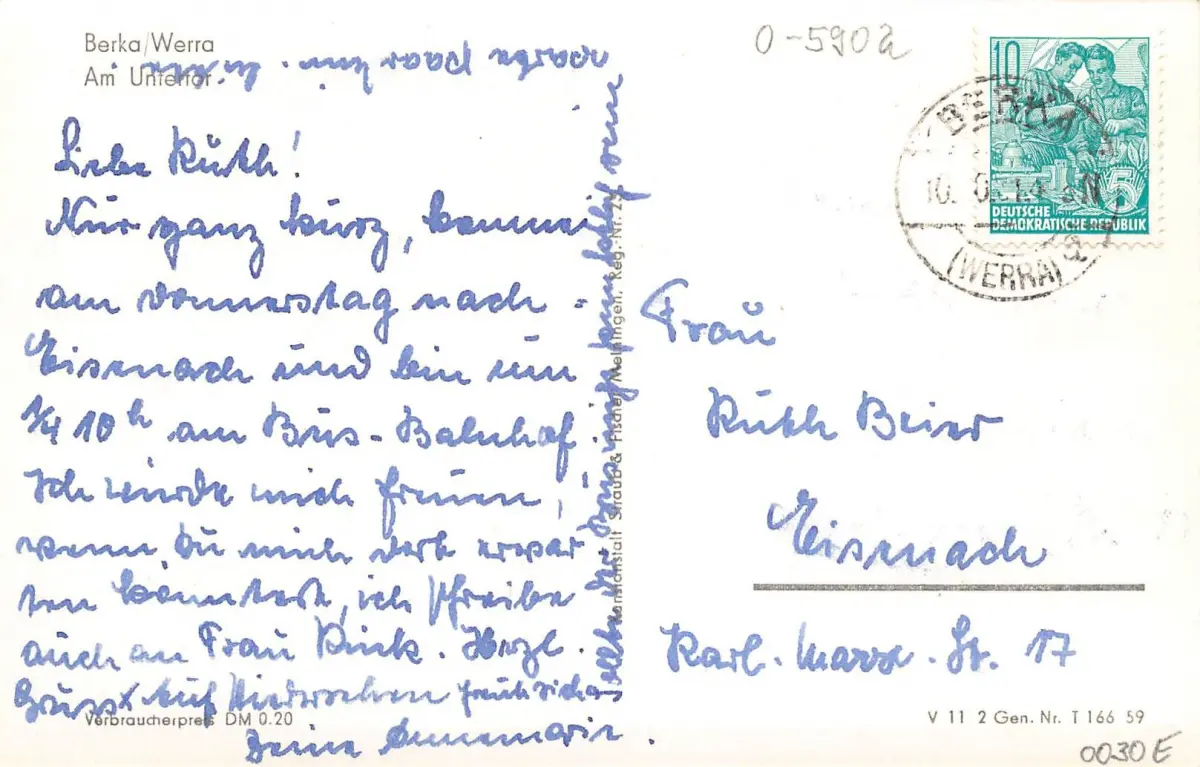 Berka/Werra
Am Untertor
Liebe Ruth!
Nur ganz kurz, komme
am Donnerstag nach
Eisenach und bin um
1/4 10 h am Bus-Bahnhof.
Ich würde mich freuen,
wenn Du mich dort erwar
ten könntest, ich schreibe
auch an Frau Kink. Herzl.
Gruss & Auf Wiedersehen freut sich
Deine Annemarie.
Sollte der Bus nicht
Kunstanstalt Straub & Fischer, Meiningen, Reg.-Nr.
Verbraucherpreis DM 0.20
0-5902
10
DEUTSCHE
DEMOKRATISCHE REPUBLIK
5
BERKA
(WERRA)
Frau
Ruth Beier
Eisenach
Karl-Marx-St. 17
V 11 2 Gen. Nr. T 166 59
0030 E